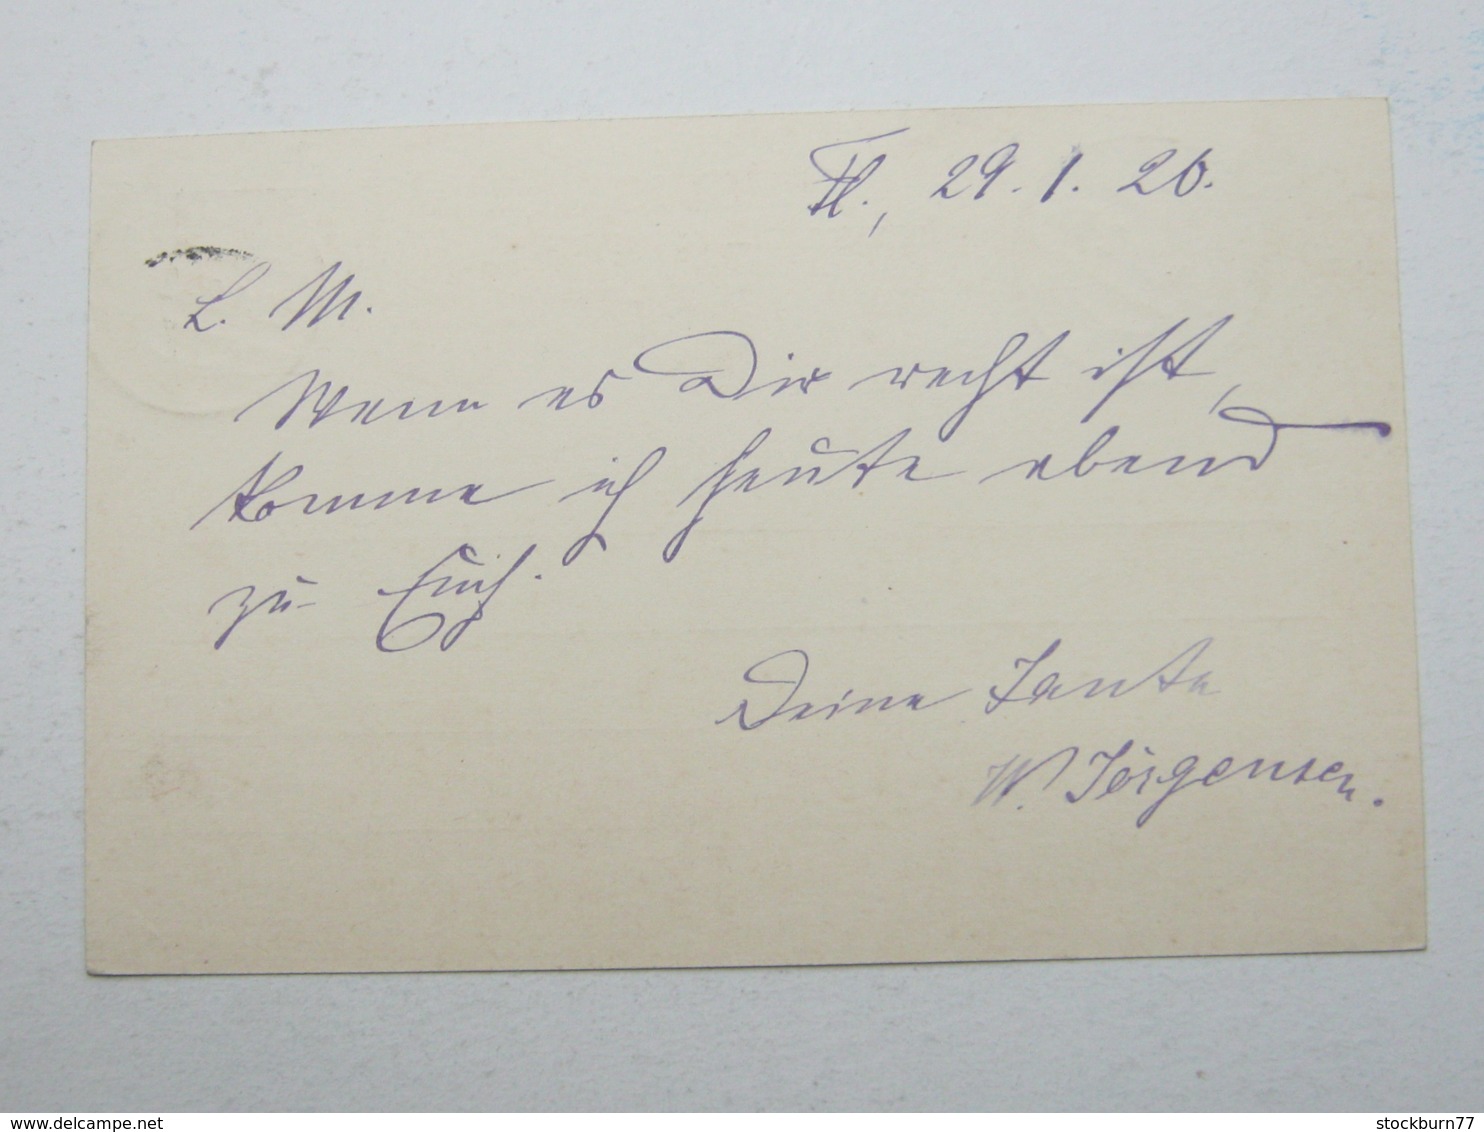 Fl., 29. 1. 26.
L. M.
Wenn es Dir recht ist,
komme ich heute abend
zu Euch.
Deine Tante
W. Jörgensen.
www.delcampe.net
stockburn77